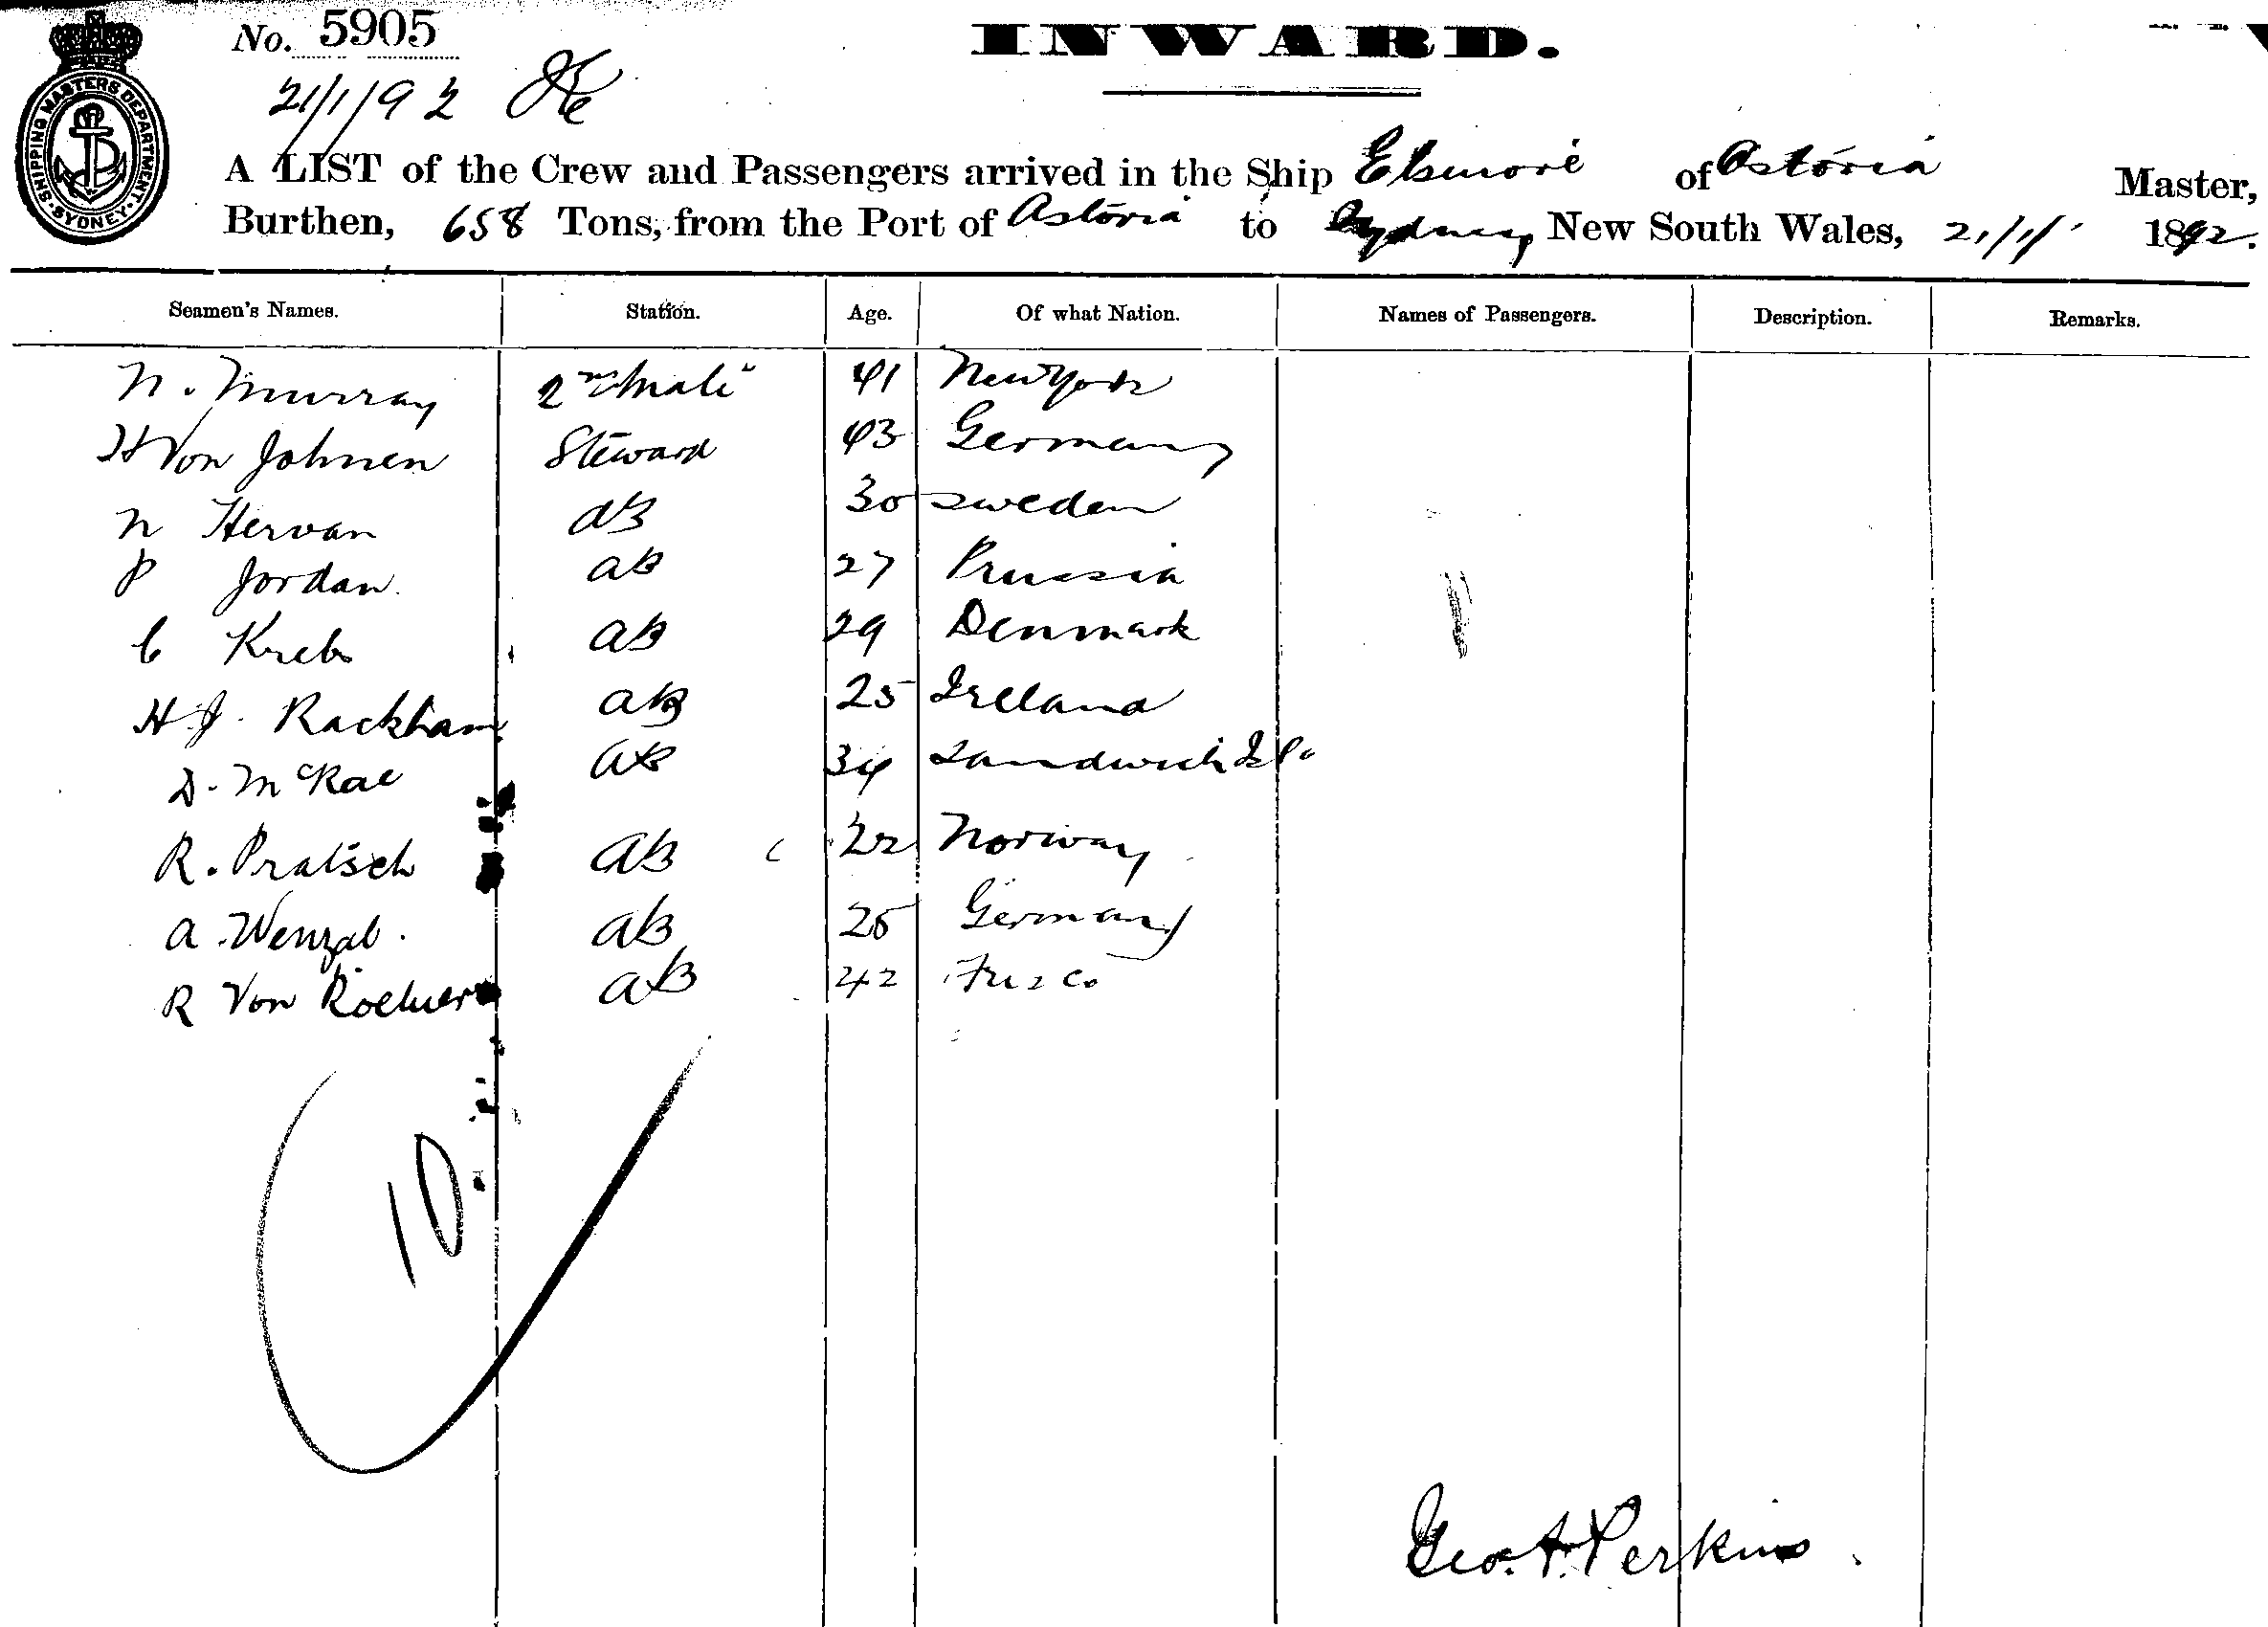 No. 5905
INWARD.
21/1/92
SHIPPING MASTERS DEPARTMENT. SYDNEY.
A LIST of the Crew and Passengers arrived in the Ship Elsmore of Astoria Master,
Burthen, 658 Tons, from the Port of Astoria to Sydney, New South Wales, 21/1/ 1892.
Seamen's Names. Station. Age. Of what Nation. Names of Passengers. Description. Remarks.
N. Murray 2nd Mate 41 New York
H Von Johnen Steward 43 Germany
N Hervan AB 30 Sweden
P Jordan. AB 27 Prussia
C Kreb AB 29 Denmark
H J. Rackham AB 25 Ireland
D. McRae AB 34 Sandwich Isls
R. Pratsch AB 22 Norway
A. Wenzal. AB 25 Germany
R Von AB 42
10
Geo. A. Perkins.